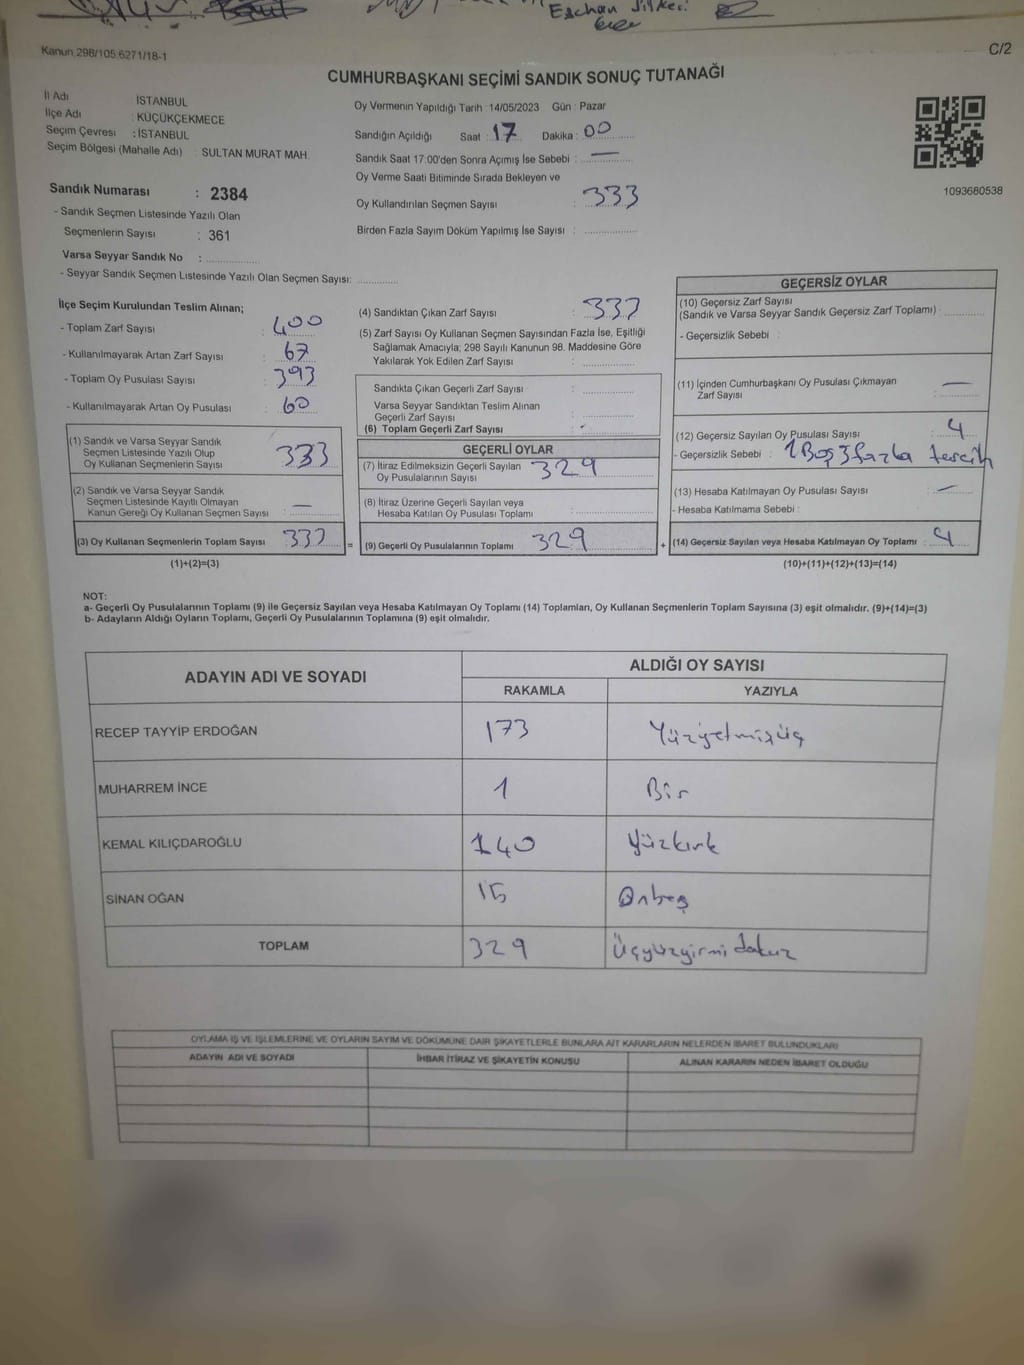 Kanun 298/105 6271/18-1
C/2
CUMHURBAŞKANI SEÇİMİ SANDIK SONUÇ TUTANAĞI
İl Adı İSTANBUL
İlçe Adı : KÜÇÜKÇEKMECE
Seçim Çevresi : İSTANBUL
Seçim Bölgesi (Mahalle Adı) : SULTAN MURAT MAH.
Sandık Numarası : 2384
- Sandık Seçmen Listesinde Yazılı Olan
Seçmenlerin Sayısı : 361
Varsa Seyyar Sandık No :
- Seyyar Sandık Seçmen Listesinde Yazılı Olan Seçmen Sayısı:
Oy Vermenin Yapıldığı Tarih : 14/05/2023 Gün : Pazar
Sandığın Açıldığı Saat : 17 Dakika : 00
Sandık Saat 17:00'den Sonra Açımış İse Sebebi : —
Oy Verme Saati Bitiminde Sırada Bekleyen ve
Oy Kullandırılan Seçmen Sayısı : 333
Birden Fazla Sayım Döküm Yapılmış İse Sayısı :
1093680538
İlçe Seçim Kurulundan Teslim Alınan;
- Toplam Zarf Sayısı : 400
- Kullanılmayarak Artan Zarf Sayısı : 67
- Toplam Oy Pusulası Sayısı : 393
- Kullanılmayarak Artan Oy Pusulası : 60
(1) Sandık ve Varsa Seyyar Sandık
Seçmen Listesinde Yazılı Olup
Oy Kullanan Seçmenlerin Sayısı 333
(2) Sandık ve Varsa Seyyar Sandık
Seçmen Listesinde Kayıtlı Olmayan
Kanun Gereği Oy Kullanan Seçmen Sayısı : —
(3) Oy Kullanan Seçmenlerin Toplam Sayısı : 333 =
(1)+(2)=(3)
(4) Sandıktan Çıkan Zarf Sayısı : 333
(5) Zarf Sayısı Oy Kullanan Seçmen Sayısından Fazla İse, Eşitliği
Sağlamak Amacıyla; 298 Sayılı Kanunun 98. Maddesine Göre
Yakılarak Yok Edilen Zarf Sayısı :
Sandıkta Çıkan Geçerli Zarf Sayısı :
Varsa Seyyar Sandıktan Teslim Alınan
Geçerli Zarf Sayısı :
(6) Toplam Geçerli Zarf Sayısı :
GEÇERLİ OYLAR
(7) İtiraz Edilmeksizin Geçerli Sayılan
Oy Pusulalarının Sayısı : 329
(8) İtiraz Üzerine Geçerli Sayılan veya
Hesaba Katılan Oy Pusulası Toplamı :
(9) Geçerli Oy Pusulalarının Toplamı 329 +
GEÇERSİZ OYLAR
(10) Geçersiz Zarf Sayısı
(Sandık ve Varsa Seyyar Sandık Geçersiz Zarf Toplamı) :
- Geçersizlik Sebebi :
(11) İçinden Cumhurbaşkanı Oy Pusulası Çıkmayan
Zarf Sayısı : —
(12) Geçersiz Sayılan Oy Pusulası Sayısı : 4
- Geçersizlik Sebebi : 1 Boş 3 fazla tercih
(13) Hesaba Katılmayan Oy Pusulası Sayısı : —
- Hesaba Katılmama Sebebi :
(14) Geçersiz Sayılan veya Hesaba Katılmayan Oy Toplamı : 4
(10)+(11)+(12)+(13)=(14)
NOT:
a- Geçerli Oy Pusulalarının Toplamı (9) ile Geçersiz Sayılan veya Hesaba Katılmayan Oy Toplamı (14) Toplamları, Oy Kullanan Seçmenlerin Toplam Sayısına (3) eşit olmalıdır. (9)+(14)=(3)
b- Adayların Aldığı Oyların Toplamı, Geçerli Oy Pusulalarının Toplamına (9) eşit olmalıdır.
ADAYIN ADI VE SOYADI
ALDIĞI OY SAYISI
RAKAMLA YAZIYLA
RECEP TAYYİP ERDOĞAN 173 Yüzyetmişüç
MUHARREM İNCE 1 Bir
KEMAL KILIÇDAROĞLU 140 Yüzkırk
SİNAN OĞAN 15 Onbeş
TOPLAM 329 Üçyüzyirmidokuz
OYLAMA İŞ VE İŞLEMLERİNE VE OYLARIN SAYIM VE DÖKÜMÜNE DAİR ŞİKAYETLERLE BUNLARA AİT KARARLARIN NELERDEN İBARET BULUNDUKLARI
ADAYIN ADI VE SOYADI İHBAR İTİRAZ VE ŞİKAYETİN KONUSU ALINAN KARARIN NEDEN İBARET OLDUĞU